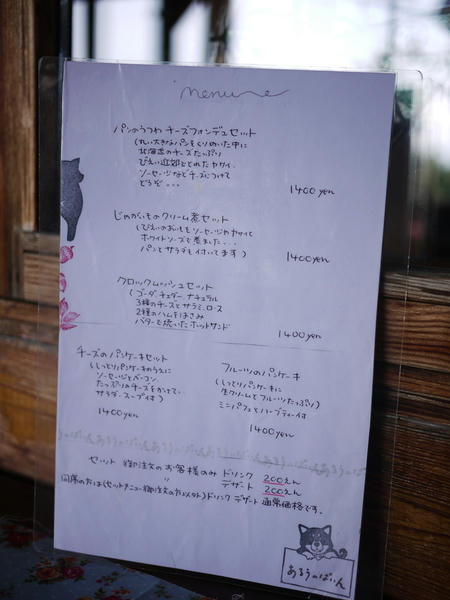 menu
パンのうつわ チーズフォンデュセット
(丸い大きなパンをくりぬいた中に
北海道のチーズたっぷり
びえい近郊でとれたヤサイ、
ソーセージなどチーズにつけて
どうぞ・・・
1400yen
じゃがいものクリーム煮セット
(びえいのおいもをソーセージやヤサイと
ホワイトソースで煮ました・・
パンとサラダも付いてます)
1400yen
クロックムッシュセット
(ゴーダ チェダー ナチュラル
3種のチーズとサラミ、ロース
2種のハムをはさみ
バターで焼いたホットサンド
1400yen
チーズのパンケーキセット
(しっとりパンケーキのうえに
ソーセージとベーコン
たっぷりのチーズをかけて、
サラダ・スープ付)
1400yen
フルーツのパンケーキ
(しっとりパンケーキに
生クリームとフルーツたっぷり)
ミニパフェとハーブティー付
1400yen
セット御注文のお客様のみ ドリンク 200えん
〃 デザート 200えん
同席の方は(セットメニュー御注文の方以外)ドリンク デザート 通常価格です。
あるうのぱいん